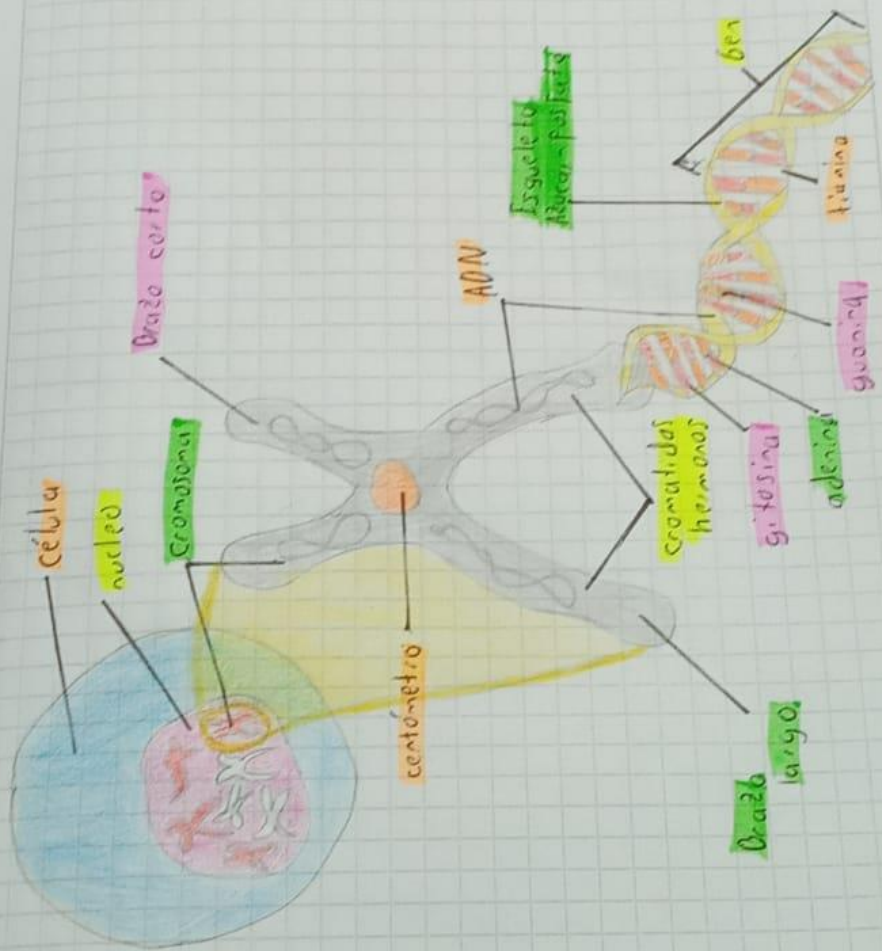 célula
nucleo
cromosoma
Brazo corto
centómetro
ADN
Esqueleto
Azucar-posfato
Gen
timina
guanina
adenina
gitosina
cromatidas
hermanas
Brazo
largo